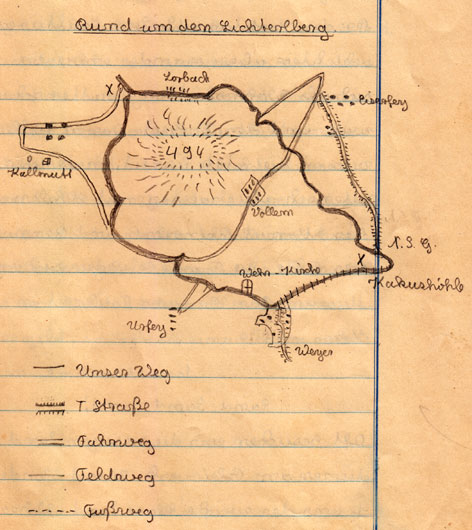 Rund um den Lichterlberg.
X
Lorbach
Eiserfey
494
Kallmuth
Vollem
N. S. G.
X
Kakushöhle
Wehr-Kirche
Urfey
Weyer
Unser Weg
T. Straße
Fahrweg
Feldweg
Fußweg